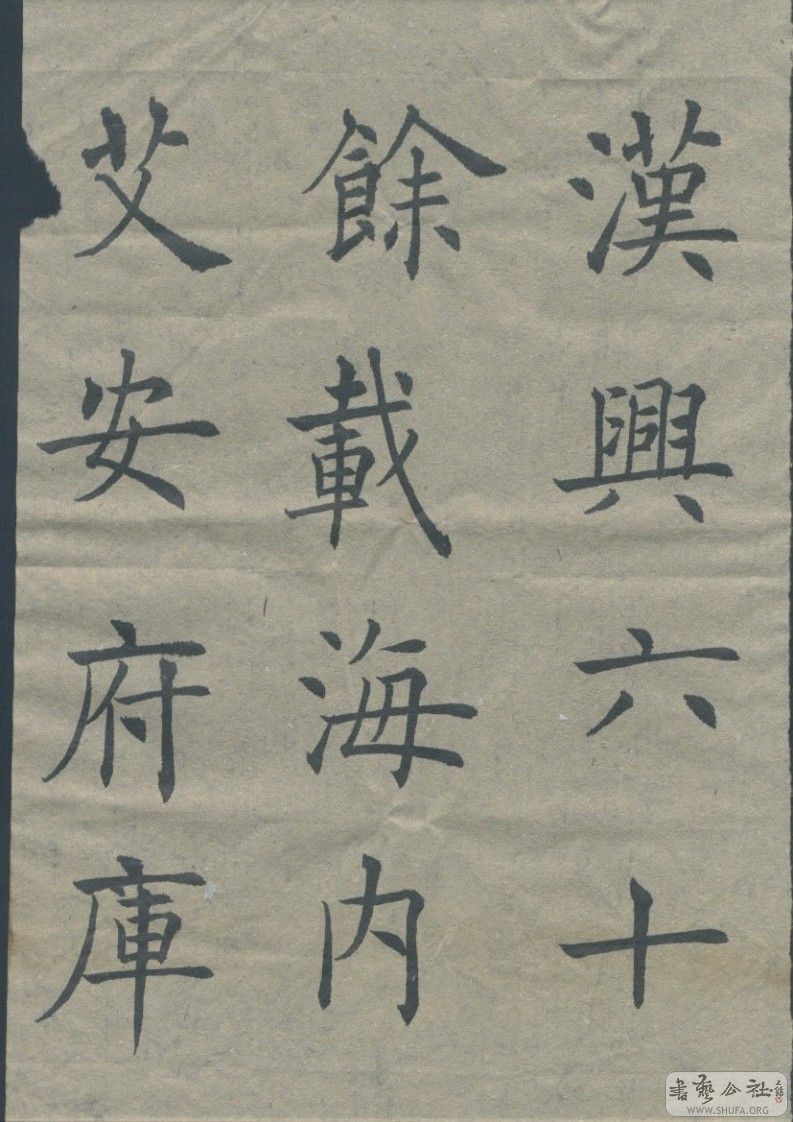 漢興六十
餘載海内
艾安府庫
書藝公社
WWW.SHUFA.ORG